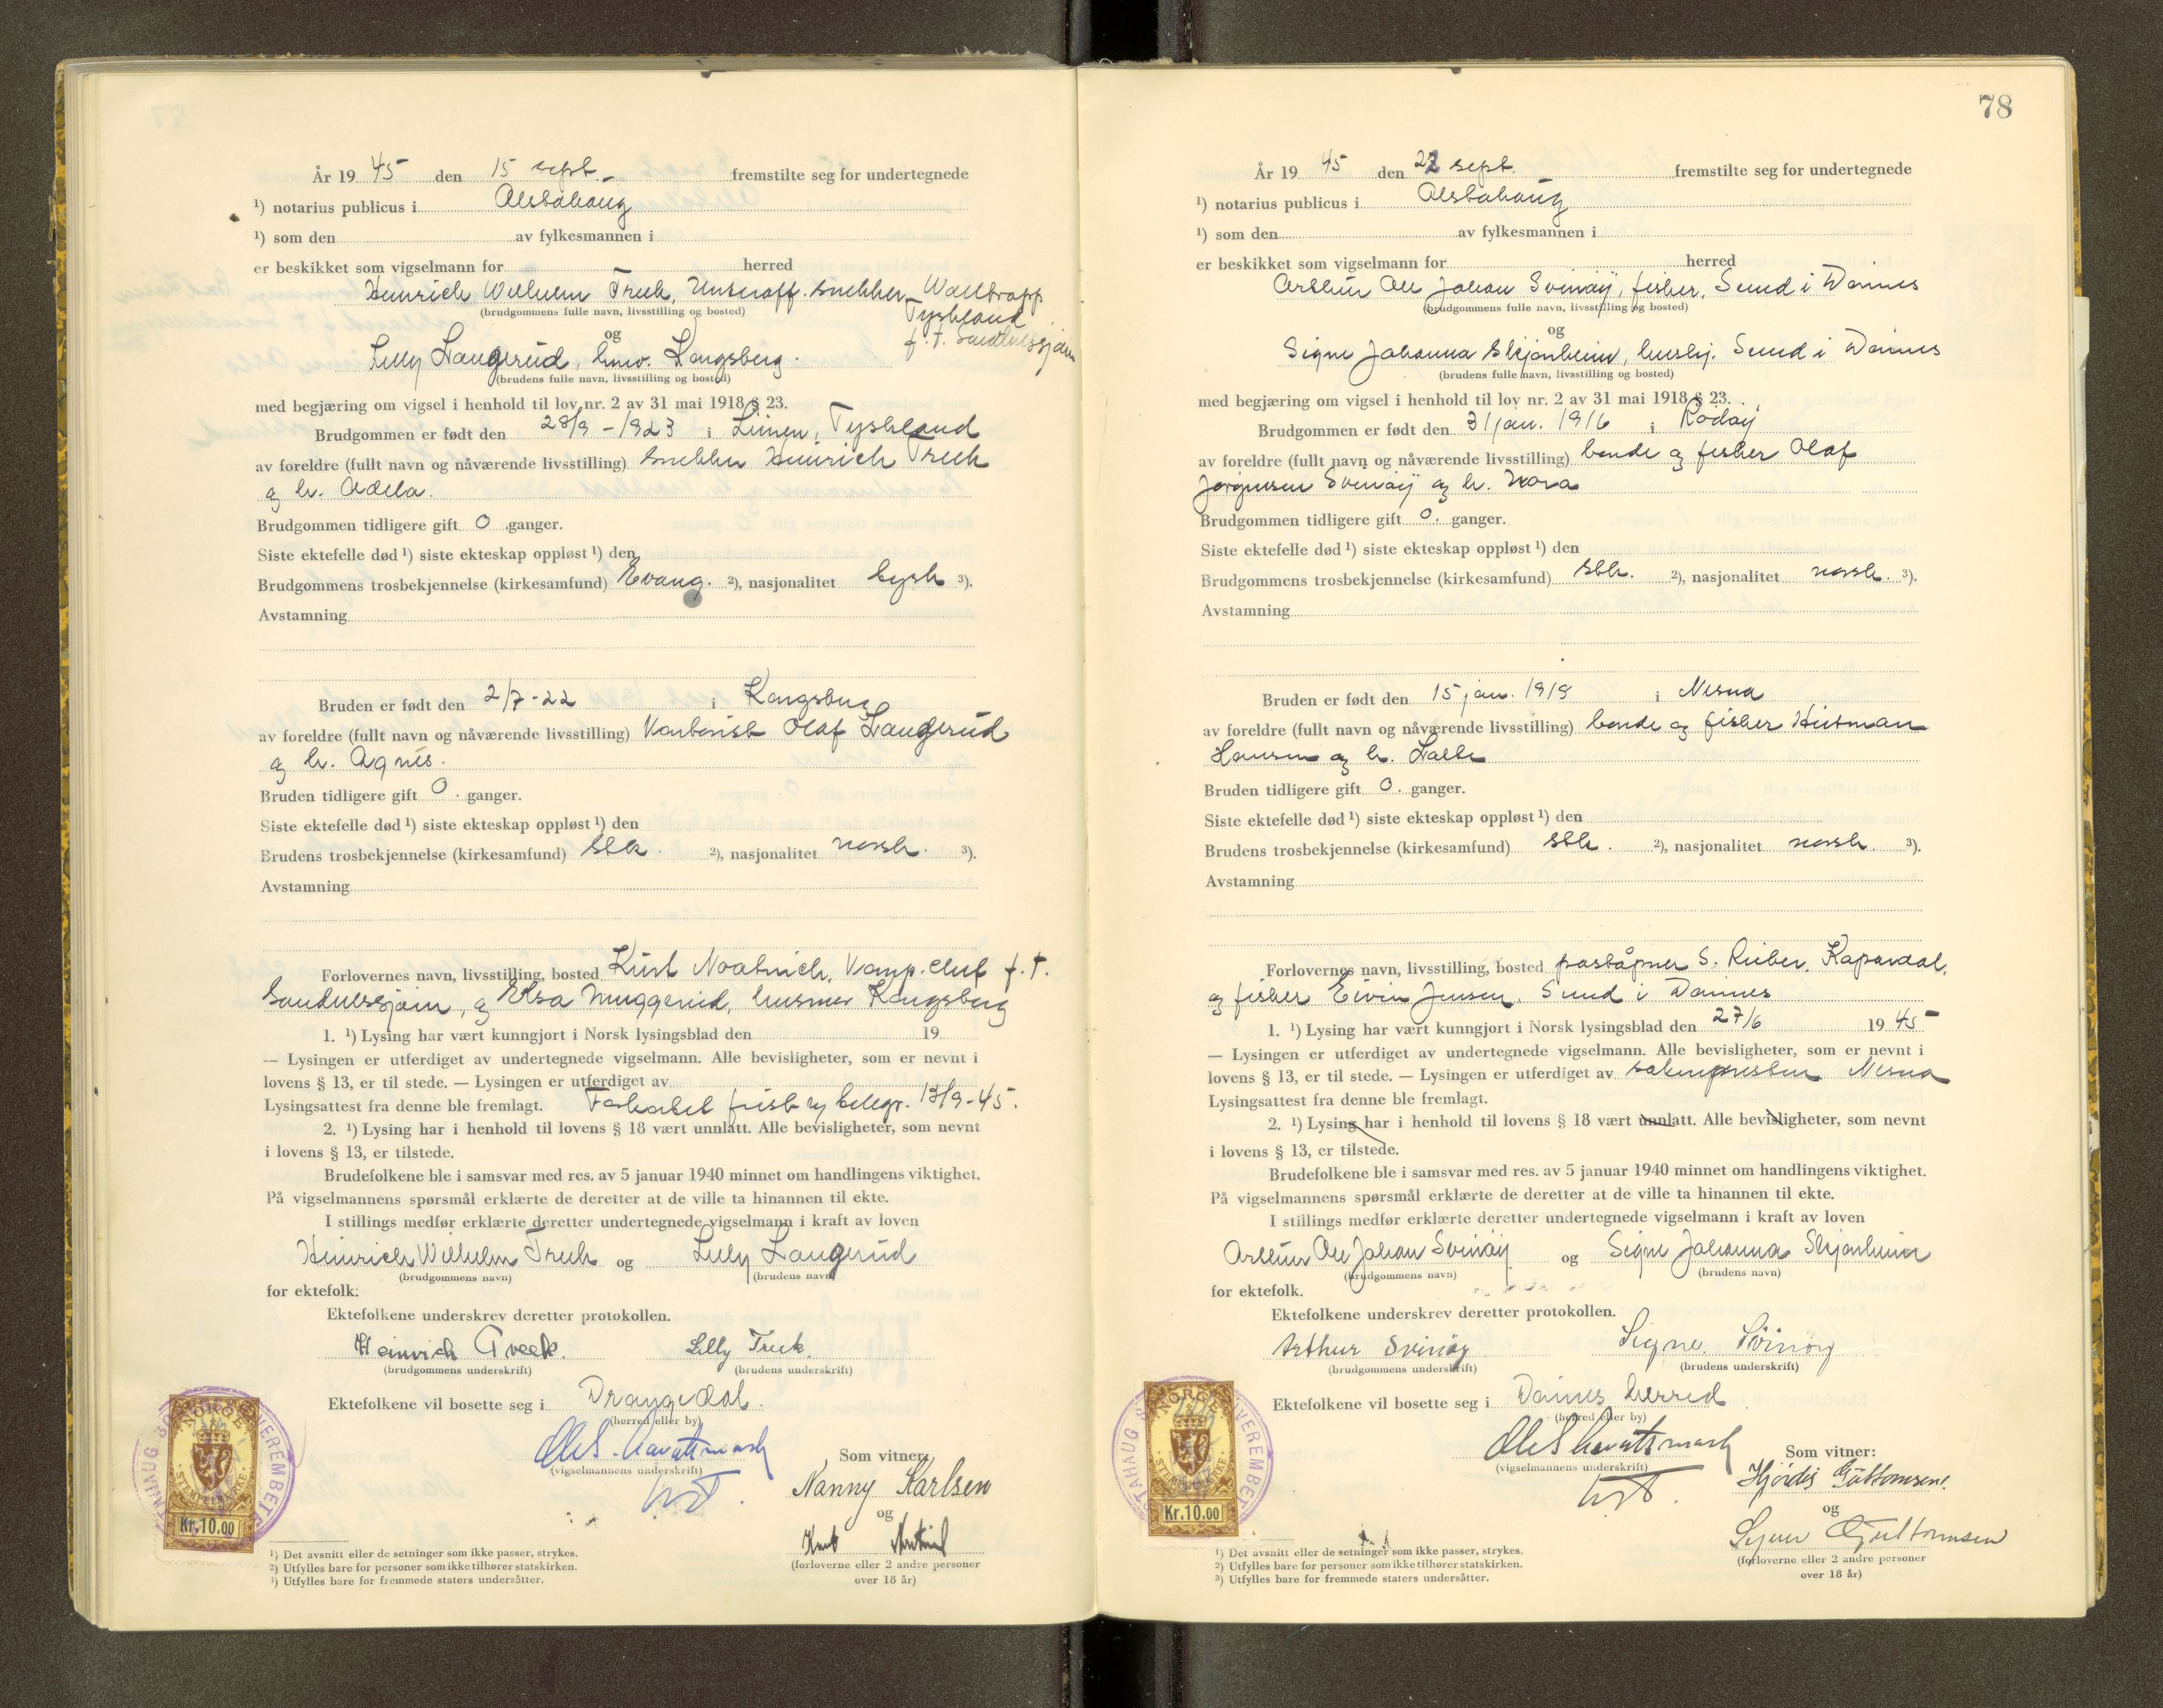 År 19 45 den 15 sept. fremstilte seg for undertegnede
¹) notarius publicus i Alstahaug
¹) som den av fylkesmannen i
er beskikket som vigselmann for herred
Heinrich Wilhelm Treek, Unteroff. snekker, Waltropp
Tyskland
(brudgommens fulle navn, livsstilling og bosted)
f. t. Sandnessjøen
og
Lilly Langerud, Kongsberg.
(brudens fulle navn, livsstilling og bosted)
med begjæring om vigsel i henhold til lov nr. 2 av 31 mai 1918 § 23.
Brudgommen er født den 28/9 - 1923 i Lünen, Tyskland
av foreldre (fullt navn og nåværende livsstilling) snekker Heinrich Treek
og h. Adela.
Brudgommen tidligere gift 0 ganger.
Siste ektefelle død ¹) siste ekteskap oppløst ¹) den
Brudgommens trosbekjennelse (kirkesamfund) Evang. ²), nasjonalitet tysk ³).
Avstamning
Bruden er født den 2/7-22 i Kongsberg
av foreldre (fullt navn og nåværende livsstilling) Kontorist Olaf Langerud
og h. Agnes.
Bruden tidligere gift 0. ganger.
Siste ektefelle død ¹) siste ekteskap oppløst ¹) den
Brudens trosbekjennelse (kirkesamfund) stk. ²), nasjonalitet norsk. ³).
Avstamning
Forlovernes navn, livsstilling, bosted Kurt f. t.
Sandnessjøen, og Elsa Muggerud, husmor Kongsberg
1. ¹) Lysing har vært kunngjort i Norsk lysingsblad den 19
— Lysingen er utferdiget av undertegnede vigselmann. Alle bevisligheter, som er nevnt i
lovens § 13, er til stede. — Lysingen er utferdiget av
Lysingsattest fra denne ble fremlagt. Forkortet frist telegr. 13/9-45.
2. ¹) Lysing har i henhold til lovens § 18 vært unnlatt. Alle bevisligheter, som nevnt
i lovens § 13, er tilstede.
Brudefolkene ble i samsvar med res. av 5 januar 1940 minnet om handlingens viktighet.
På vigselmannens spørsmål erklærte de deretter at de ville ta hinannen til ekte.
I stillings medfør erklærte deretter undertegnede vigselmann i kraft av loven
Heinrich Wilhelm Treek og Lilly Langerud
(brudgommens navn) (brudens navn)
for ektefolk.
Ektefolkene underskrev deretter protokollen.
Heinrich Treek. Lilly Treek.
(brudgommens underskrift) (brudens underskrift)
Ektefolkene vil bosette seg i Drangedal.
(herred eller by)
(vigselmannens underskrift)
Som vitner:
Nanny Karlsen
og
Kurt
(forloverne eller 2 andre personer
over 18 år)
NORGE
STEMPELMERKE
Kr.10.00
¹) Det avsnitt eller de setninger som ikke passer, strykes.
²) Utfylles bare for personer som ikke tilhører statskirken.
³) Utfylles bare for fremmede staters undersåtter.
78
År 19 45 den 22 sept. fremstilte seg for undertegnede
¹) notarius publicus i Alstahaug
¹) som den av fylkesmannen i
er beskikket som vigselmann for herred
Arthur Johan Svinøy, fisker, Sund i Dønnes
(brudgommens fulle navn, livsstilling og bosted)
og
Signe Johanna Skjønheim, hushj. Sund i Dønnes
(brudens fulle navn, livsstilling og bosted)
med begjæring om vigsel i henhold til lov nr. 2 av 31 mai 1918 § 23.
Brudgommen er født den 31 jan. 1916 i Rødøy
av foreldre (fullt navn og nåværende livsstilling) bonde og fisker Olaf
Jørgensen Svinøy og h. Nora
Brudgommen tidligere gift 0. ganger.
Siste ektefelle død ¹) siste ekteskap oppløst ¹) den
Brudgommens trosbekjennelse (kirkesamfund) stk. ²), nasjonalitet norsk. ³).
Avstamning
Bruden er født den 15 jan. 1919 i Nesna
av foreldre (fullt navn og nåværende livsstilling) bonde og fisker
Hansen og h.
Bruden tidligere gift 0. ganger.
Siste ektefelle død ¹) siste ekteskap oppløst ¹) den
Brudens trosbekjennelse (kirkesamfund) stk. ²), nasjonalitet norsk. ³).
Avstamning
Forlovernes navn, livsstilling, bosted poståpner S.
og fisker Eivin Jensen. Sund i Dønnes
1. ¹) Lysing har vært kunngjort i Norsk lysingsblad den 27/6 19 45
— Lysingen er utferdiget av undertegnede vigselmann. Alle bevisligheter, som er nevnt i
lovens § 13, er til stede. — Lysingen er utferdiget av soknepresten Nesna
Lysingsattest fra denne ble fremlagt.
2. ¹) Lysing har i henhold til lovens § 18 vært unnlatt. Alle bevisligheter, som nevnt
i lovens § 13, er tilstede.
Brudefolkene ble i samsvar med res. av 5 januar 1940 minnet om handlingens viktighet.
På vigselmannens spørsmål erklærte de deretter at de ville ta hinannen til ekte.
I stillings medfør erklærte deretter undertegnede vigselmann i kraft av loven
Arthur Johan Svinøy og Signe Johanna Skjønheim
(brudgommens navn) (brudens navn)
for ektefolk.
Ektefolkene underskrev deretter protokollen.
Arthur Svinøy Signe Svinøy
(brudgommens underskrift) (brudens underskrift)
Ektefolkene vil bosette seg i Dønnes herred
(herred eller by)
(vigselmannens underskrift)
Som vitner:
Hjördis Guttormsen.
og
Guttormsen
(forloverne eller 2 andre personer
over 18 år)
NORGE
STEMPELMERKE
Kr.10.00
¹) Det avsnitt eller de setninger som ikke passer, strykes.
²) Utfylles bare for personer som ikke tilhører statskirken.
³) Utfylles bare for fremmede staters undersåtter.